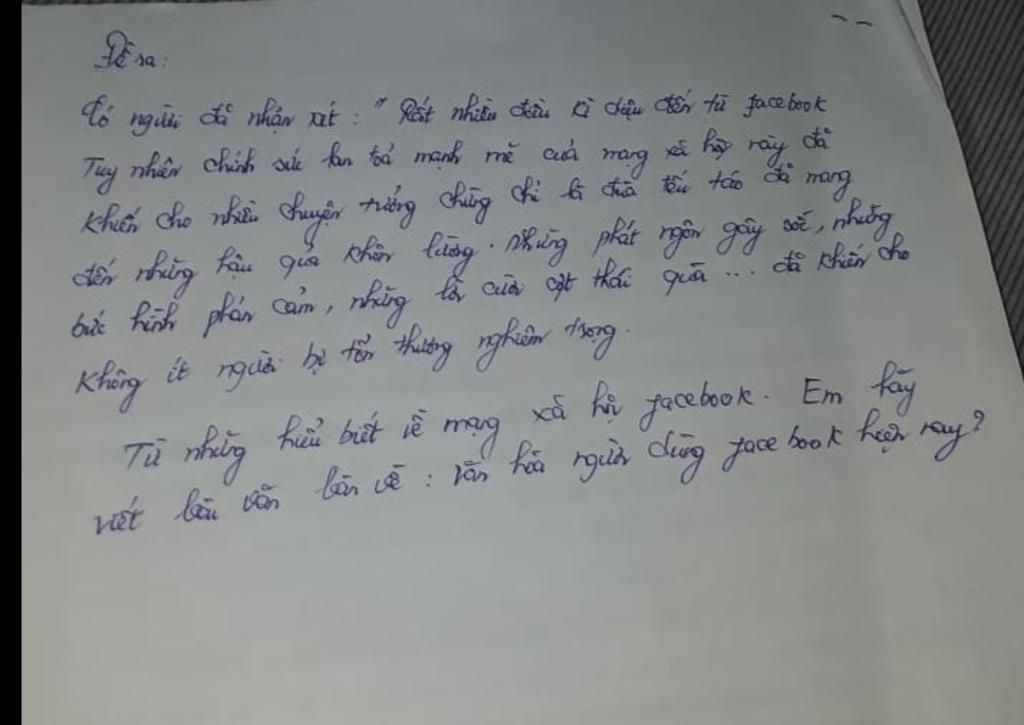 Đề ra:
Có người đã nhận xét: "Rất nhiều điều kì diệu đến từ facebook
Tuy nhiên chính sức lan toả mạnh mẽ của mạng xã hội này đã
khiến cho nhiều chuyện tưởng chừng chỉ là đùa tếu táo đã mang
đến những hậu quả khôn lường. Những phát ngôn gây sốc, những
bức hình phản cảm, những lời cười cợt thái quá... đã khiến cho
không ít người bị tổn thương nghiêm trọng.
Từ những hiểu biết về mạng xã hội facebook. Em hãy
viết bài văn bàn về: Văn hóa người dùng facebook hiện nay?